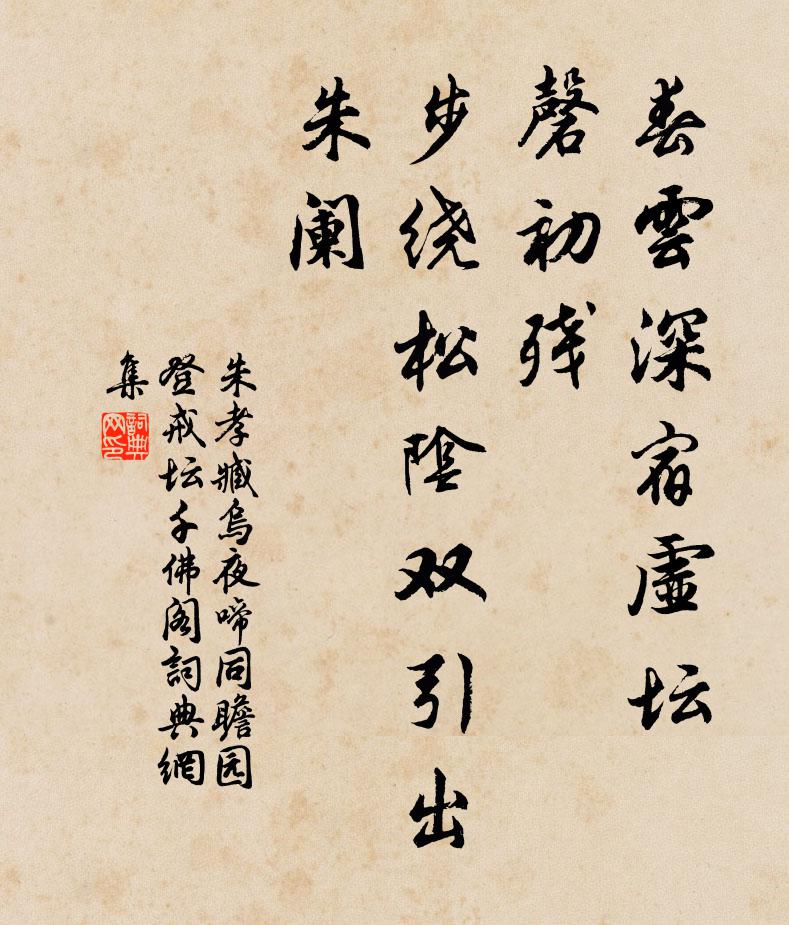 春雲深宿虛坛
磬初残
步绕松陰双引出
朱阑
朱孝臧烏夜啼同瞻园
登戒坛千佛阁詞典網
集
詞典网印